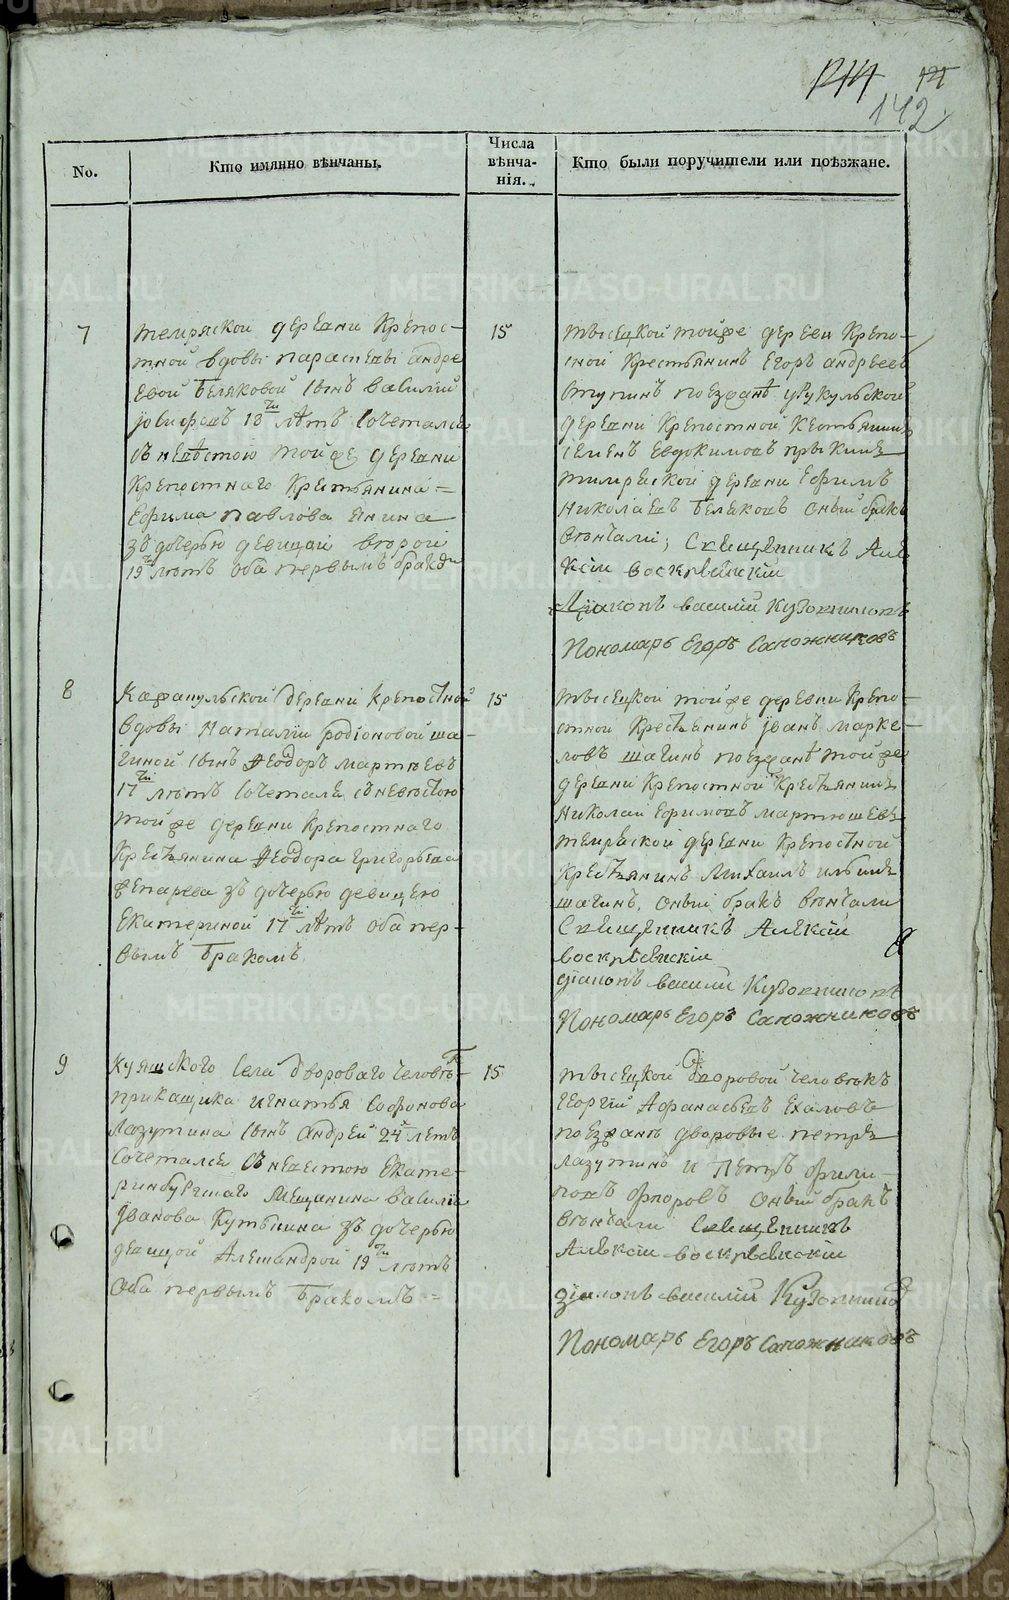 142
No.
Кто имянно вѣнчаны.
Числа
вѣнча-
нія.
Кто были поручители или поѣзжане.
7
темряской деревни крепос-
тной вдовы параскевы андре
евой Беляковой сынъ василий
іосифовъ 18ти лѣтъ сочетался
съ невѣстою тойже деревни
крепостнаго крестьянина =
ефима павлова янина
зъ дочерью девицей
19 лѣтъ оба первымъ бракомъ
15
тысецкой тойже деревни крепо-
сной крестьянинъ Егоръ андреевъ
ступинъ поезжанѣ
деревни крепостной
семенъ евдокимовъ
темряской деревни ефимъ
николаевъ Беляковъ оный бракъ
венчали; Священникъ Але
ксiи воскресенскiи
Дiаконъ василiи
Пономарь Егоръ Сапожниковъ
8
деревни крепостной
вдовы наталiи родiоновой ша-
гиной сынъ Ѳеодоръ
17ти лѣтъ сочетался съ невѣстою
тойже деревни крепостнаго
крестьянина Ѳеодора григорьева
зъ дочерью девицею
екатериной 17ти лѣтъ оба пер-
вымъ бракомъ
15
тысецкой тойже деревни крепо-
стной крестьянинъ iванъ марке-
ловъ шагинъ поезжанѣ тойже
деревни крепостной крестьянинъ
николаи ефимовъ мартюшевъ
темряской деревни крепостной
крестьянинъ михаилъ ильинъ
шагинъ, оный бракъ венчали
Священникъ Алексiи
воскресенскiи
дiаконъ васили
Пономарь Егоръ Сапожниковъ
9
куяшского села двороваго человека
прикащика игнатья софонова
лазутина сынъ андрей 24 летъ
сочетался съ невестою екате-
ринбургшаго мещанина василiя
iванова зъ дочерью
девицой александрой 19ти лѣтъ
оба первымъ бракомъ =
15
тысецкой дворовой человѣкъ
георгiй Афанасьевъ
поезжанѣ дворовые петръ
лазутинъ и петръ фили-
повъ оный бракъ
венчали священникъ
Алексiи воскресенскiи
дiаконъ василiи
Пономарь Егоръ Сапожниковъ
METRIKI.GASO-URAL.RU